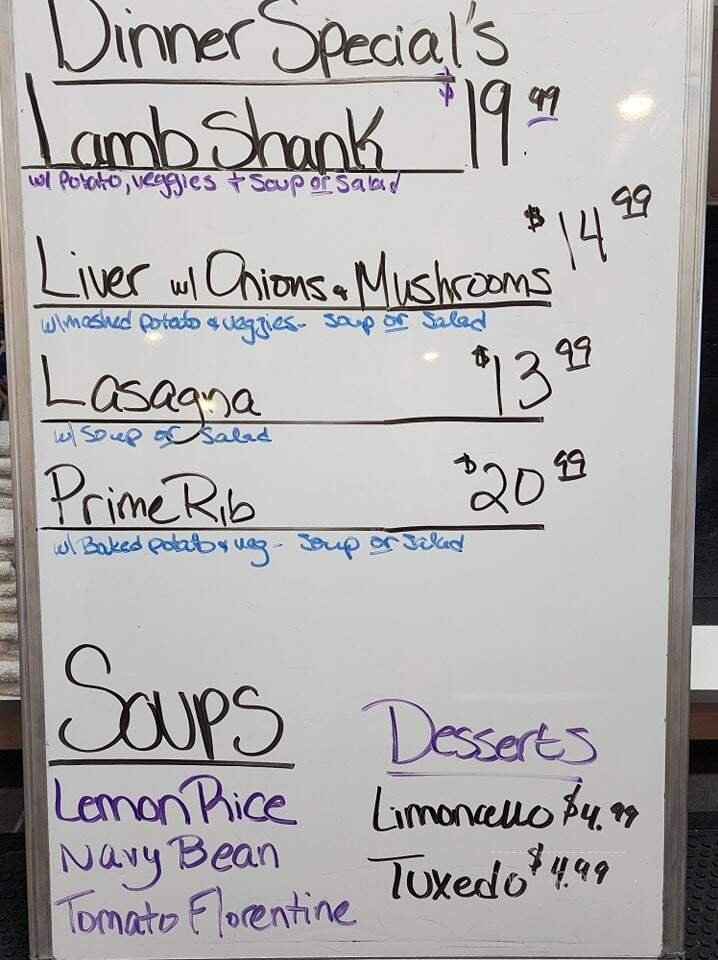 Dinner Special's
Lamb Shank $19.99
w/ Potato, veggies + Soup or Salad
Liver w/ Onions & Mushrooms $14.99
w/mashed potato & veggies- soup or salad
Lasagna $13.99
w/ Soup or Salad
Prime Rib $20.99
w/ Baked potato & veg - Soup or Salad
Soups
Lemon Rice
Navy Bean
Tomato Florentine
Desserts
Limoncello $4.99
Tuxedo $4.99